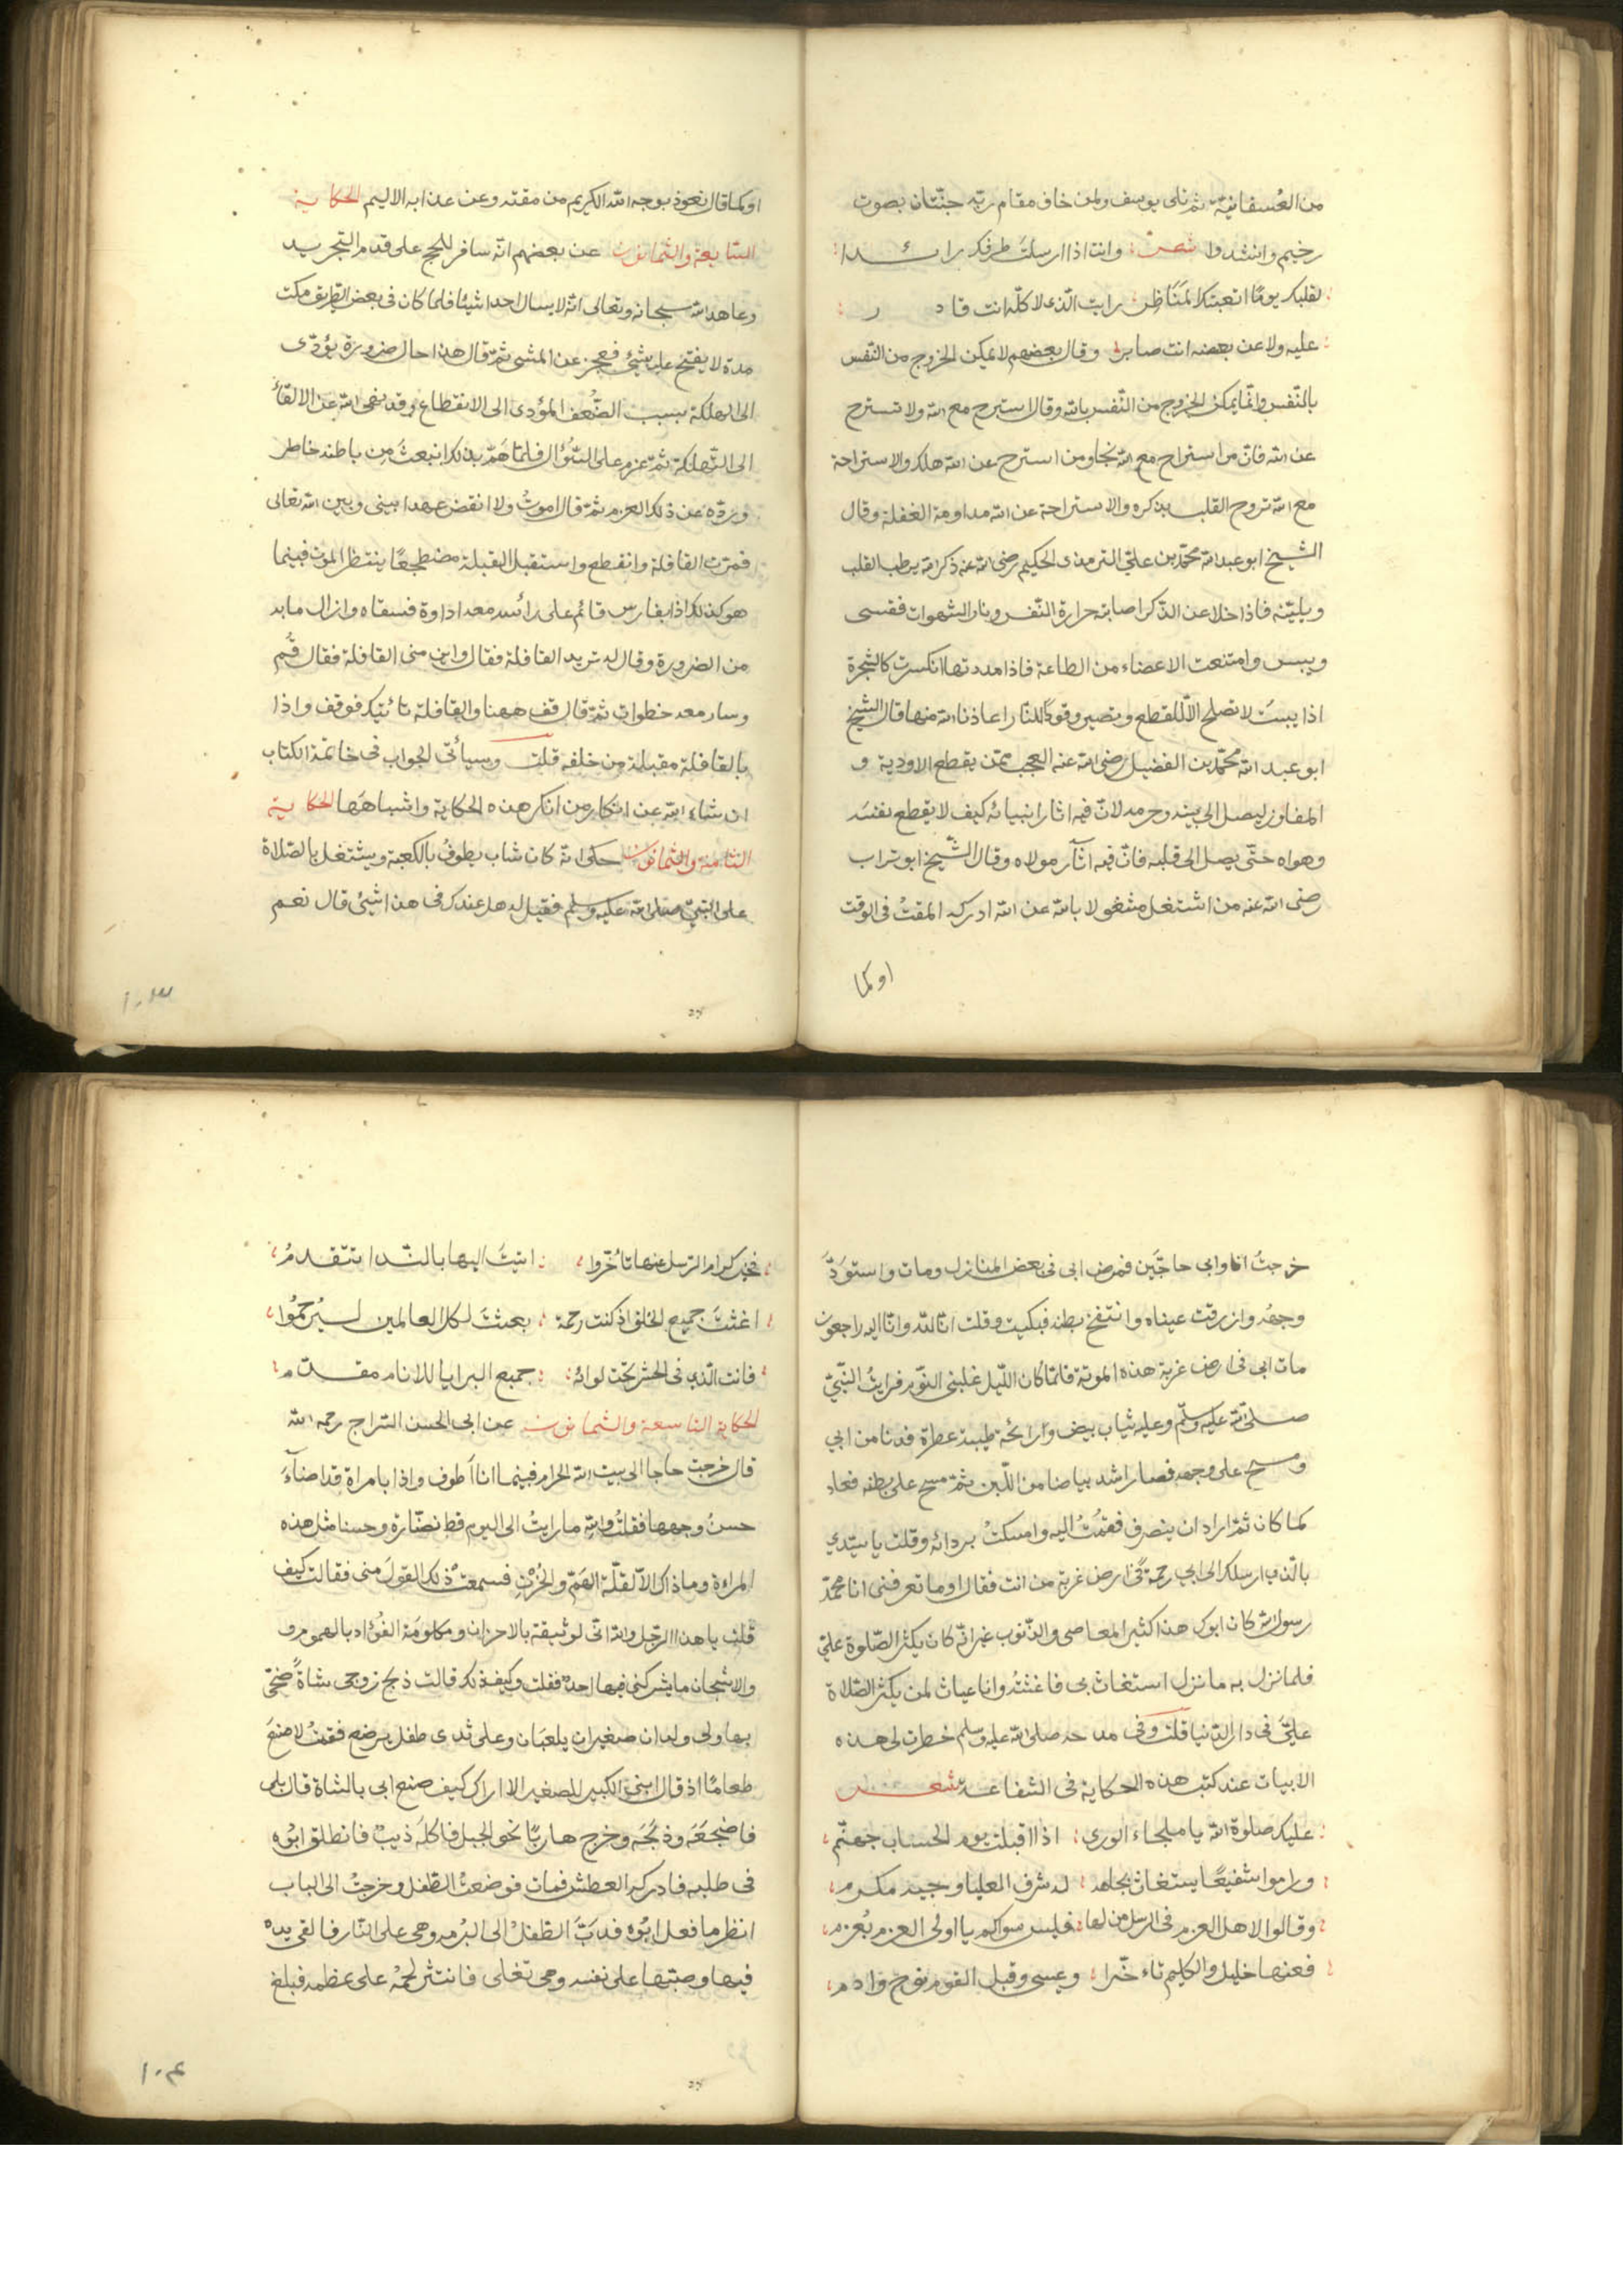 من العسفانية ثم تلى يوسف ولمن خاف مقام ربّه جنّتان بصوت
رخيم وانشدوا شعر وانت اذا ارسلتَ طرفك رائدا
لقلبك يومًا اتعبتك المَنَاظِر رايت الّذى لا كلّه انت قادر
عليه ولا عن بعضه انت صابر وقال بعضهم لا يمكن الخروج من النّفس
بالنّفس وانّما يمكن الخروج من النّفس بالله وقال استرح مع الله ولا تسترح
عن الله فانّ من استراح مع الله نجا ومن استرح عن الله هلك والاستراحة
مع الله تروح القلب بذكره والاستراحة عن الله مداومة الغفلة وقال
الشيخ ابو عبد الله محمّد بن علىّ الترمذى الحكيم رضى الله عنه ذكر الله يرطب القلب
ويليّنه فاذا خلا عن الذّكر اصابته حرارة النّفس ونار الشهوات فقسى
ويبس وامتنعت الاعضاء من الطاعة فاذا مددتها انكسرت كالشجرة
اذا يبست لا تصلح الّا للقطع وتصير وقودًا للنّار اعاذنا الله منها قال الشيخ
ابو عبد الله محمّد بن الفضيل رضى الله عنه العجب ممّن يقطع الاودية و
المفاوز ليصل الى بيته وحرمه لانّ فيه اثار انبيائه كيف لا يقطع نفسَه
وهواه حتّى يصل الى قلبه فانّ فيه اثآر مولاه وقال الشّيخ ابو تراب
رضى الله عنه من اشتغل مشغولا بالله عن الله ادركه المقتُ فى الوقت
او كما
او كما قال نعوذ بوجه الله الكريم من مقته وعن عذابه الاليم الحكاية
السّابعة والثمانون عن بعضهم انّه سافر للحج على قدم التجريد
وعاهد الله سبحانه وتعالى انّه لا يسال احدا شيئًا فلما كان فى بعض الطريق مكث
مدة لا يفتح عليه بشيئ فعجز عن المشى ثمّ قال هذا حال ضرورة يؤدّى
الى الهلكة بسبب الضُّعف المؤدى الى الانقطاع وقد نهى الله عن الالقاء
الى التّهلكة ثمّ عزم على السّؤال فلمّا هَمّ بذلك انبعثَ من باطنه خاطر
وردّه عن ذلك العزم ثمّ قال اموتُ ولا انقض عهدا بينى وبين الله تعالى
فمرّت القافلة وانقطع واستقبل القبلة مضطجعًا ينتظر الموت فبينما
هو كذلك اذا بفارس قائم على رائسه معه اداوة فسقاه وازال ما به
من الضرورة وقال له تريد القافلة فقال واين منى القافلة فقال قُم
وسار معه خطوات ثمّ قال قف ههنا والقافلة تائتيك فوقف واذا
بالقافلة مقبلة من خلفه قلت وسيائتى الجواب فى خاتمة الكتاب
ان شاء الله عن انكار من انكر هذه الحكاية واشباهَها الحكاية
الثامنة والثمانون حكى انّه كان شاب يطوفُ بالكعبة ويشتغل بالصّلاة
على النّبىّ صلى الله عليه وسلم فقيل له هل عندك فى هذا شيئ قال نعم
١٠٣
خرجتُ انا وابى حاجّين فمرض ابى فى بعض المنازل ومات واسوَدَّ
وجهُه وازرقّت عيناه وانتفخ بطنه فبكيت وقلت انّا للّه وانّا اليه راجعون
مات ابى فى ارض غربة هذه الموتة فلمّا كان اللّيل غلبنى النّوم فرايتُ النّبىّ
صلى الله عليه وسلّم وعليه ثياب بيض ورائحة طيبة عطرة فدنا من ابي
ومسح على وجهه فصار اشد بياضا من اللّبن ثمّ مسح على بطنه فعاد
كما كان ثمّ اراد ان ينصرف فقمتُ اليه وامسكتُ بردائه وقلت يا سيّدي
بالّذى ارسلك الى ابى رحمةً فى ارض غربة من انت فقال اوما تعرفنى انا محمّد
رسول الله كان ابوك هذا كثير المعاصى والذّنوب غير انّه كان يكثر الصّلوة علىّ
فلما نزل به ما نزل استغاث بى فاغثتُه وانا غياث لمن يكثر الصّلاة
علىَّ فى دار الدّنيا قلت وفى مدحه صلى الله عليه وسلم خطرت لى هذه
الابيات عند كتب هذه الحكاية فى الشفاعة شعر
عليك صلوة الله يا ملجاء الورى اذا اقبلت يوم الحساب جهنّم
وراموا شفيعًا يستغاث بجاهه له شرف العليا وجيه مكرم
وقالوا لاهل العزم فى الرسل من لها فليس سواكم يا اولى العزم يُعزم
فعنها خليل والكليم تاءخّرا وعيسى وقبل القوم نوح وادم
فحين كرام الرّسل عنها تاءخّروا اتيتَ اليها بالنّدا تتقدمُ
اغثتَ جميع الخلق اذ كنت رحمة بعثتَ لكل العالمين ليُرحَمُوا
فانت الّذى فى الحشر تحت لوائه جميع البرايا للانام مقدّم
الحكاية التاسعة والثمانون عن ابى الحسن السّراج رحمه الله
قال خرجت حاجا الى بيت الله الحرام فبينما انا اَطوف واذا بامراة قد اضآءَ
حسنُ وجهها فقلتُ والله ما رايتُ الى اليوم قط نضّارة وحسنا مثل هذه
المراءة وما ذاك الّا لقلّة الهَمّ والحُزْن فسمعتْ ذلك القولَ منى فقالت كيف
قلتَ يا هذا الرّجل والله انّى لوثيقة بالاحزان ومكلومَة الفؤاد بالهموم
والاشجان ما يشركنى فيها احد فقلت وكيف ذلك قالت ذبح زوجى شاةً ضحّى
بها ولى ولدان صغيران يلعبَان وعلى ثدى طفل يرضع فقمتُ لاصنعَ
طعامًا اذ قال ابنى الكبير للصغير الا اراك كيف صنع ابى بالشاة قال بلى
فاضجَعَه وذبَحَه وخرج هاربًا نحو الجبل فاكله ذيبٌ فانطلق ابوه
فى طلبه فادركه العطش فمات فوضعتُ الطّفل وخرجتُ الى الباب
انظر ما فعل ابوه فدَبَّ الطفلُ الى البُرمه وهى على النّار فالقى يده
فيها وصبّها على نفسه وهى تغلى فانتثر لحمُه على عظمه فبلغ
١٠٤